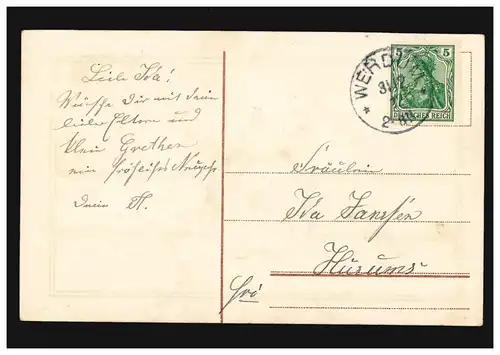 Liebe Ida!
Wünsche Dir mit Deinen
lieben Eltern und
klein Grethen
ein fröhliches Neujahr
Dein H.
WERDUM
2-
5 5
DEUTSCHES REICH
Fräulein
Ida Janssen
Husums